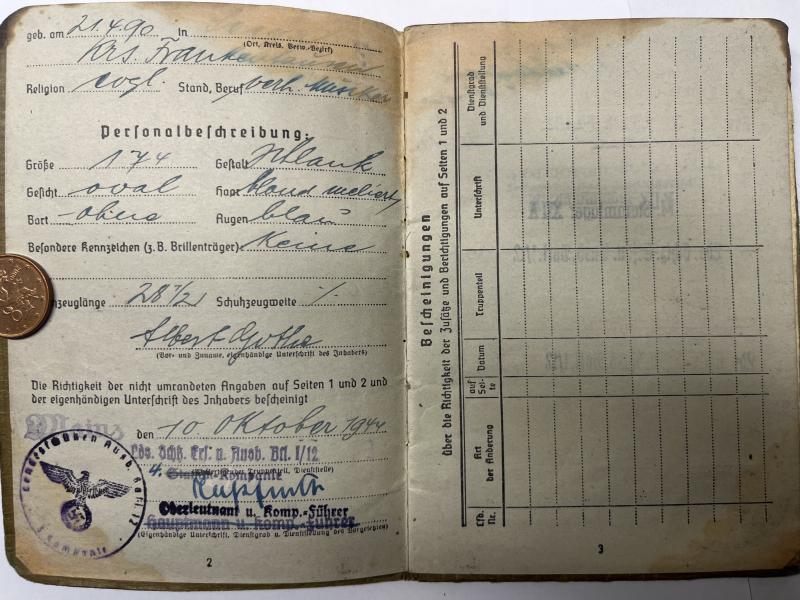 geb. am 21.4.90 in
(Ort, Kreis, Verw.-Bezirk)
Krs. Franken
Religion evgl. Stand, Beruf verh. Musiker
Personalbeschreibung:
Größe 174 Gestalt schlank
Gesicht oval Haar blond meliert
Bart ohne Augen blau
Besondere Kennzeichen (z.B. Brillenträger): Keine
zeuglänge 28 1/2 Schuhzeugweite /.
Albert Gothe
(Vor- und Zuname, eigenhändige Unterschrift des Inhabers)
Die Richtigkeit der nicht umrandeten Angaben auf Seiten 1 und 2 und
der eigenhändigen Unterschrift des Inhabers bescheinigt
Mainz den 10. Oktober 1944
Lds. Schtz. Ers. u. Ausb. Btl. I/12
4. Kompanie
Oberleutnant u. Komp.-Führer
Hauptmann u. Komp.-Führer
(Eigenhändige Unterschrift, Dienstgrad u. Dienststellung des Vorgesetzten)
2
Bescheinigungen
über die Richtigkeit der Zusätze und Berichtigungen auf Seiten 1 und 2
Lfd. Nr.
Art der Änderung
auf Sei-te
Datum
Truppenteil
Unterschrift
Dienstgrad und Dienststellung
3